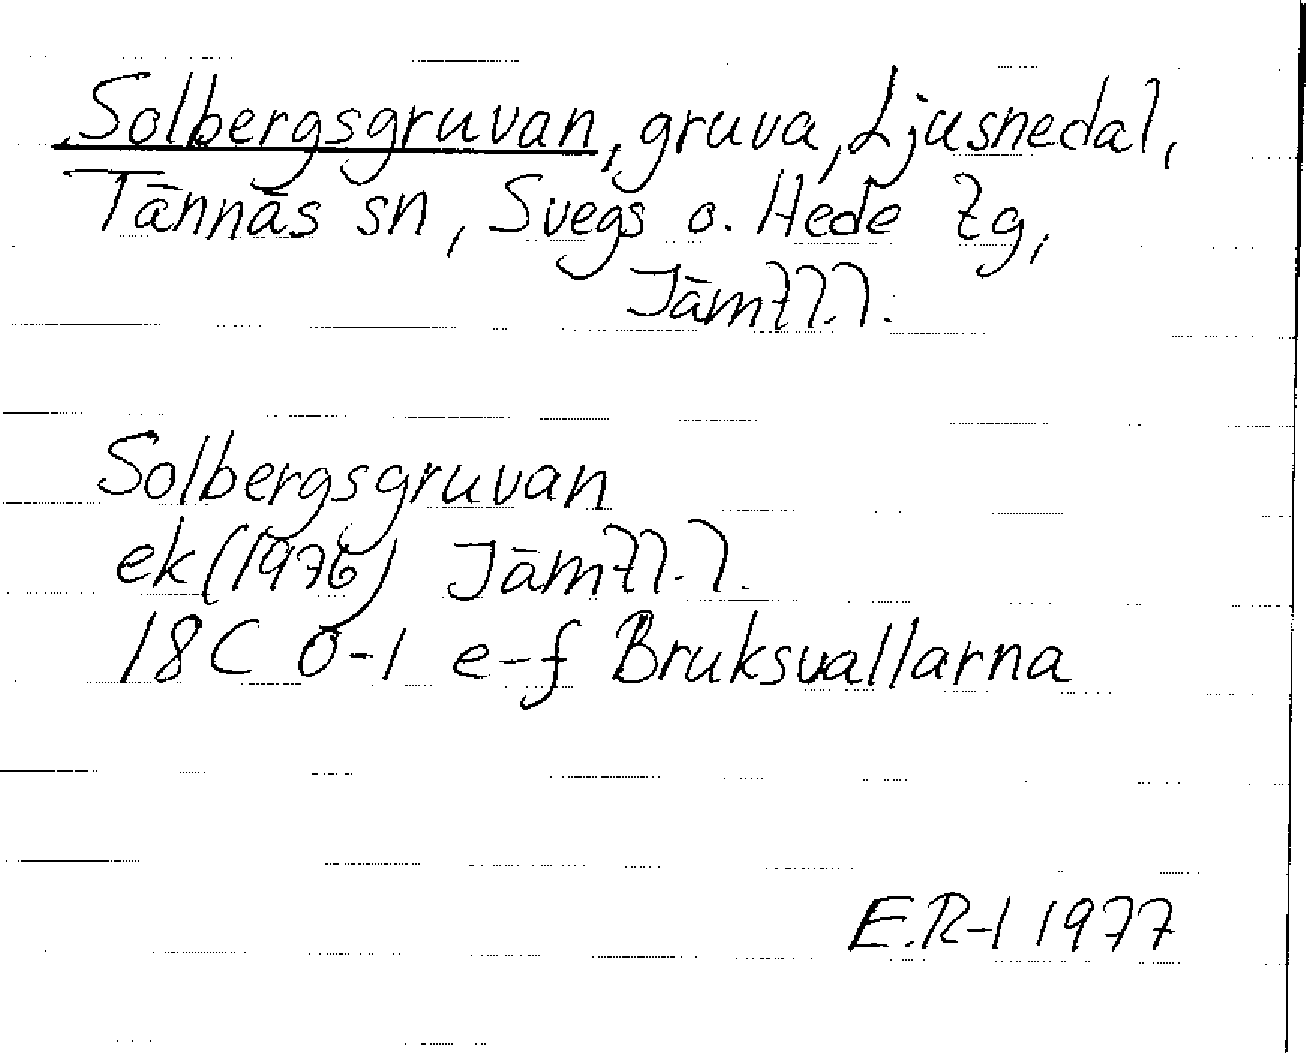 Solbergsgruvan, gruva, Ljusnedal,
Tännäs sn, Svegs o. Hede tg,
Jämtl.l.
Solbergsgruvan
ek (1976) Jämtl.l.
18C 0-1 e-f Bruksvallarna
E.R-l 1977